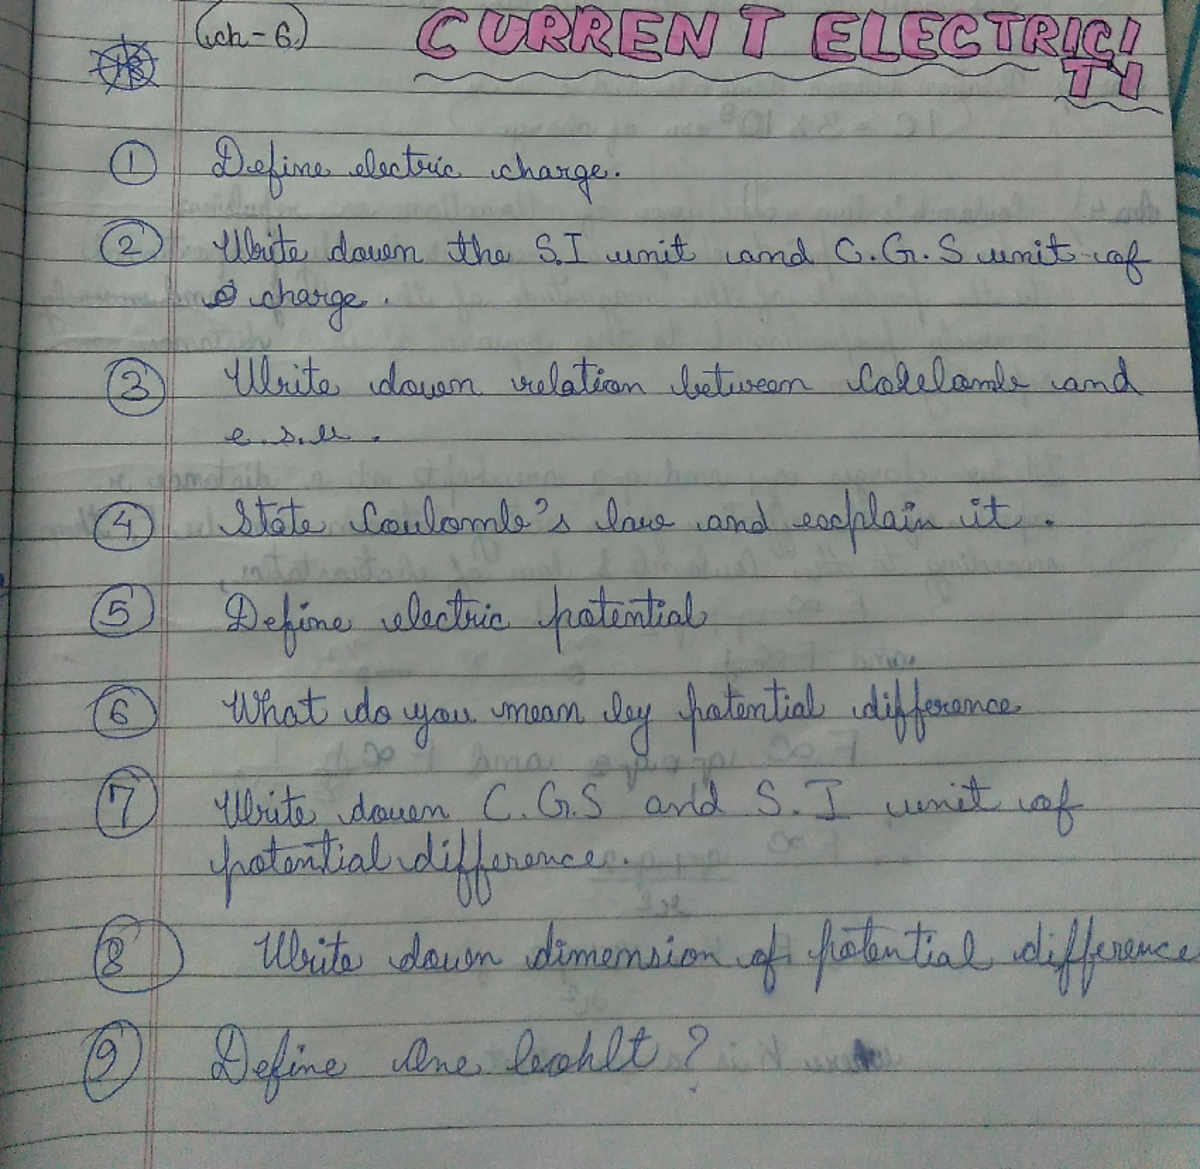 (ch-6)
CURRENT ELECTRICI
TY
① Define electric charge.
② Write down the S.I unit and C.G.S unit of
charge.
③ Write down relation between Coulomb and
e.s.u.
④ State Coulomb's law and explain it.
⑤ Define electric potential
⑥ What do you mean by potential difference
⑦ Write down C.G.S and S.I unit of
potential difference.
⑧ Write down dimension of potential difference
⑨ Define One